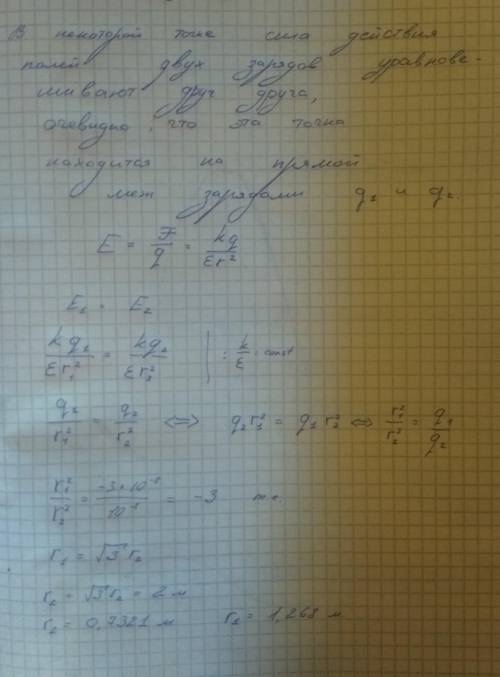 В некоторой точке сила действия
полей двух зарядов уравнове-
шивают друг друга,
очевидно, что эта точка
находится на прямой
меж зарядами q₁ и q₂.
E = F/q = kq/εr²
E₁ = E₂
kq₁/εr₁² = kq₂/εr₂² | : k/ε = const
q₁/r₁² = q₂/r₂² ⇔ q₂r₁² = q₁r₂² ⇔ r₁²/r₂² = q₁/q₂
r₁²/r₂² = = -3 т.е.
r₁ = √3 r₂
= 2 м
0,7321 м r₁ = 1,268 м